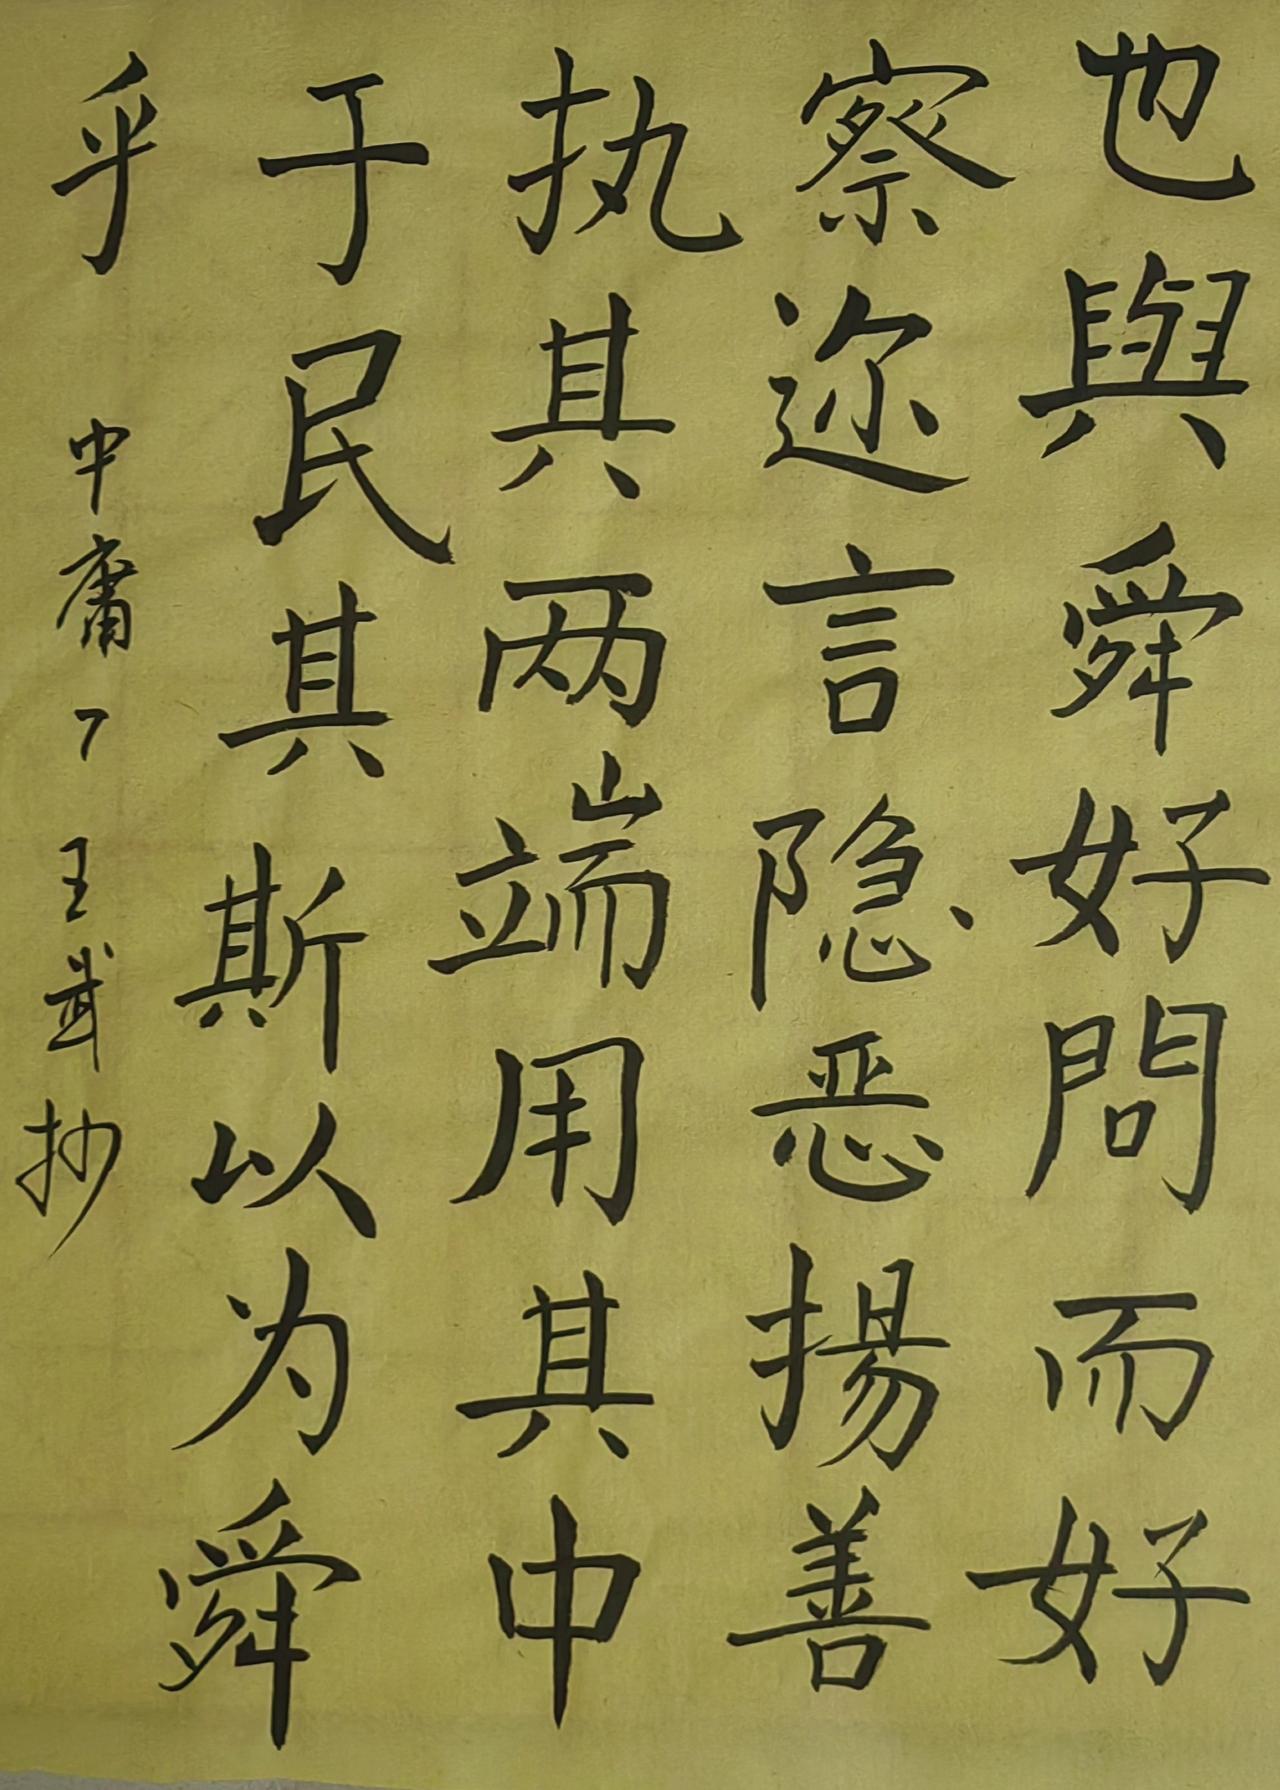 也與舜好問而好
察迩言隐恶揚善
执其两端用其中
于民其斯以为舜
乎
中庸
王武抄